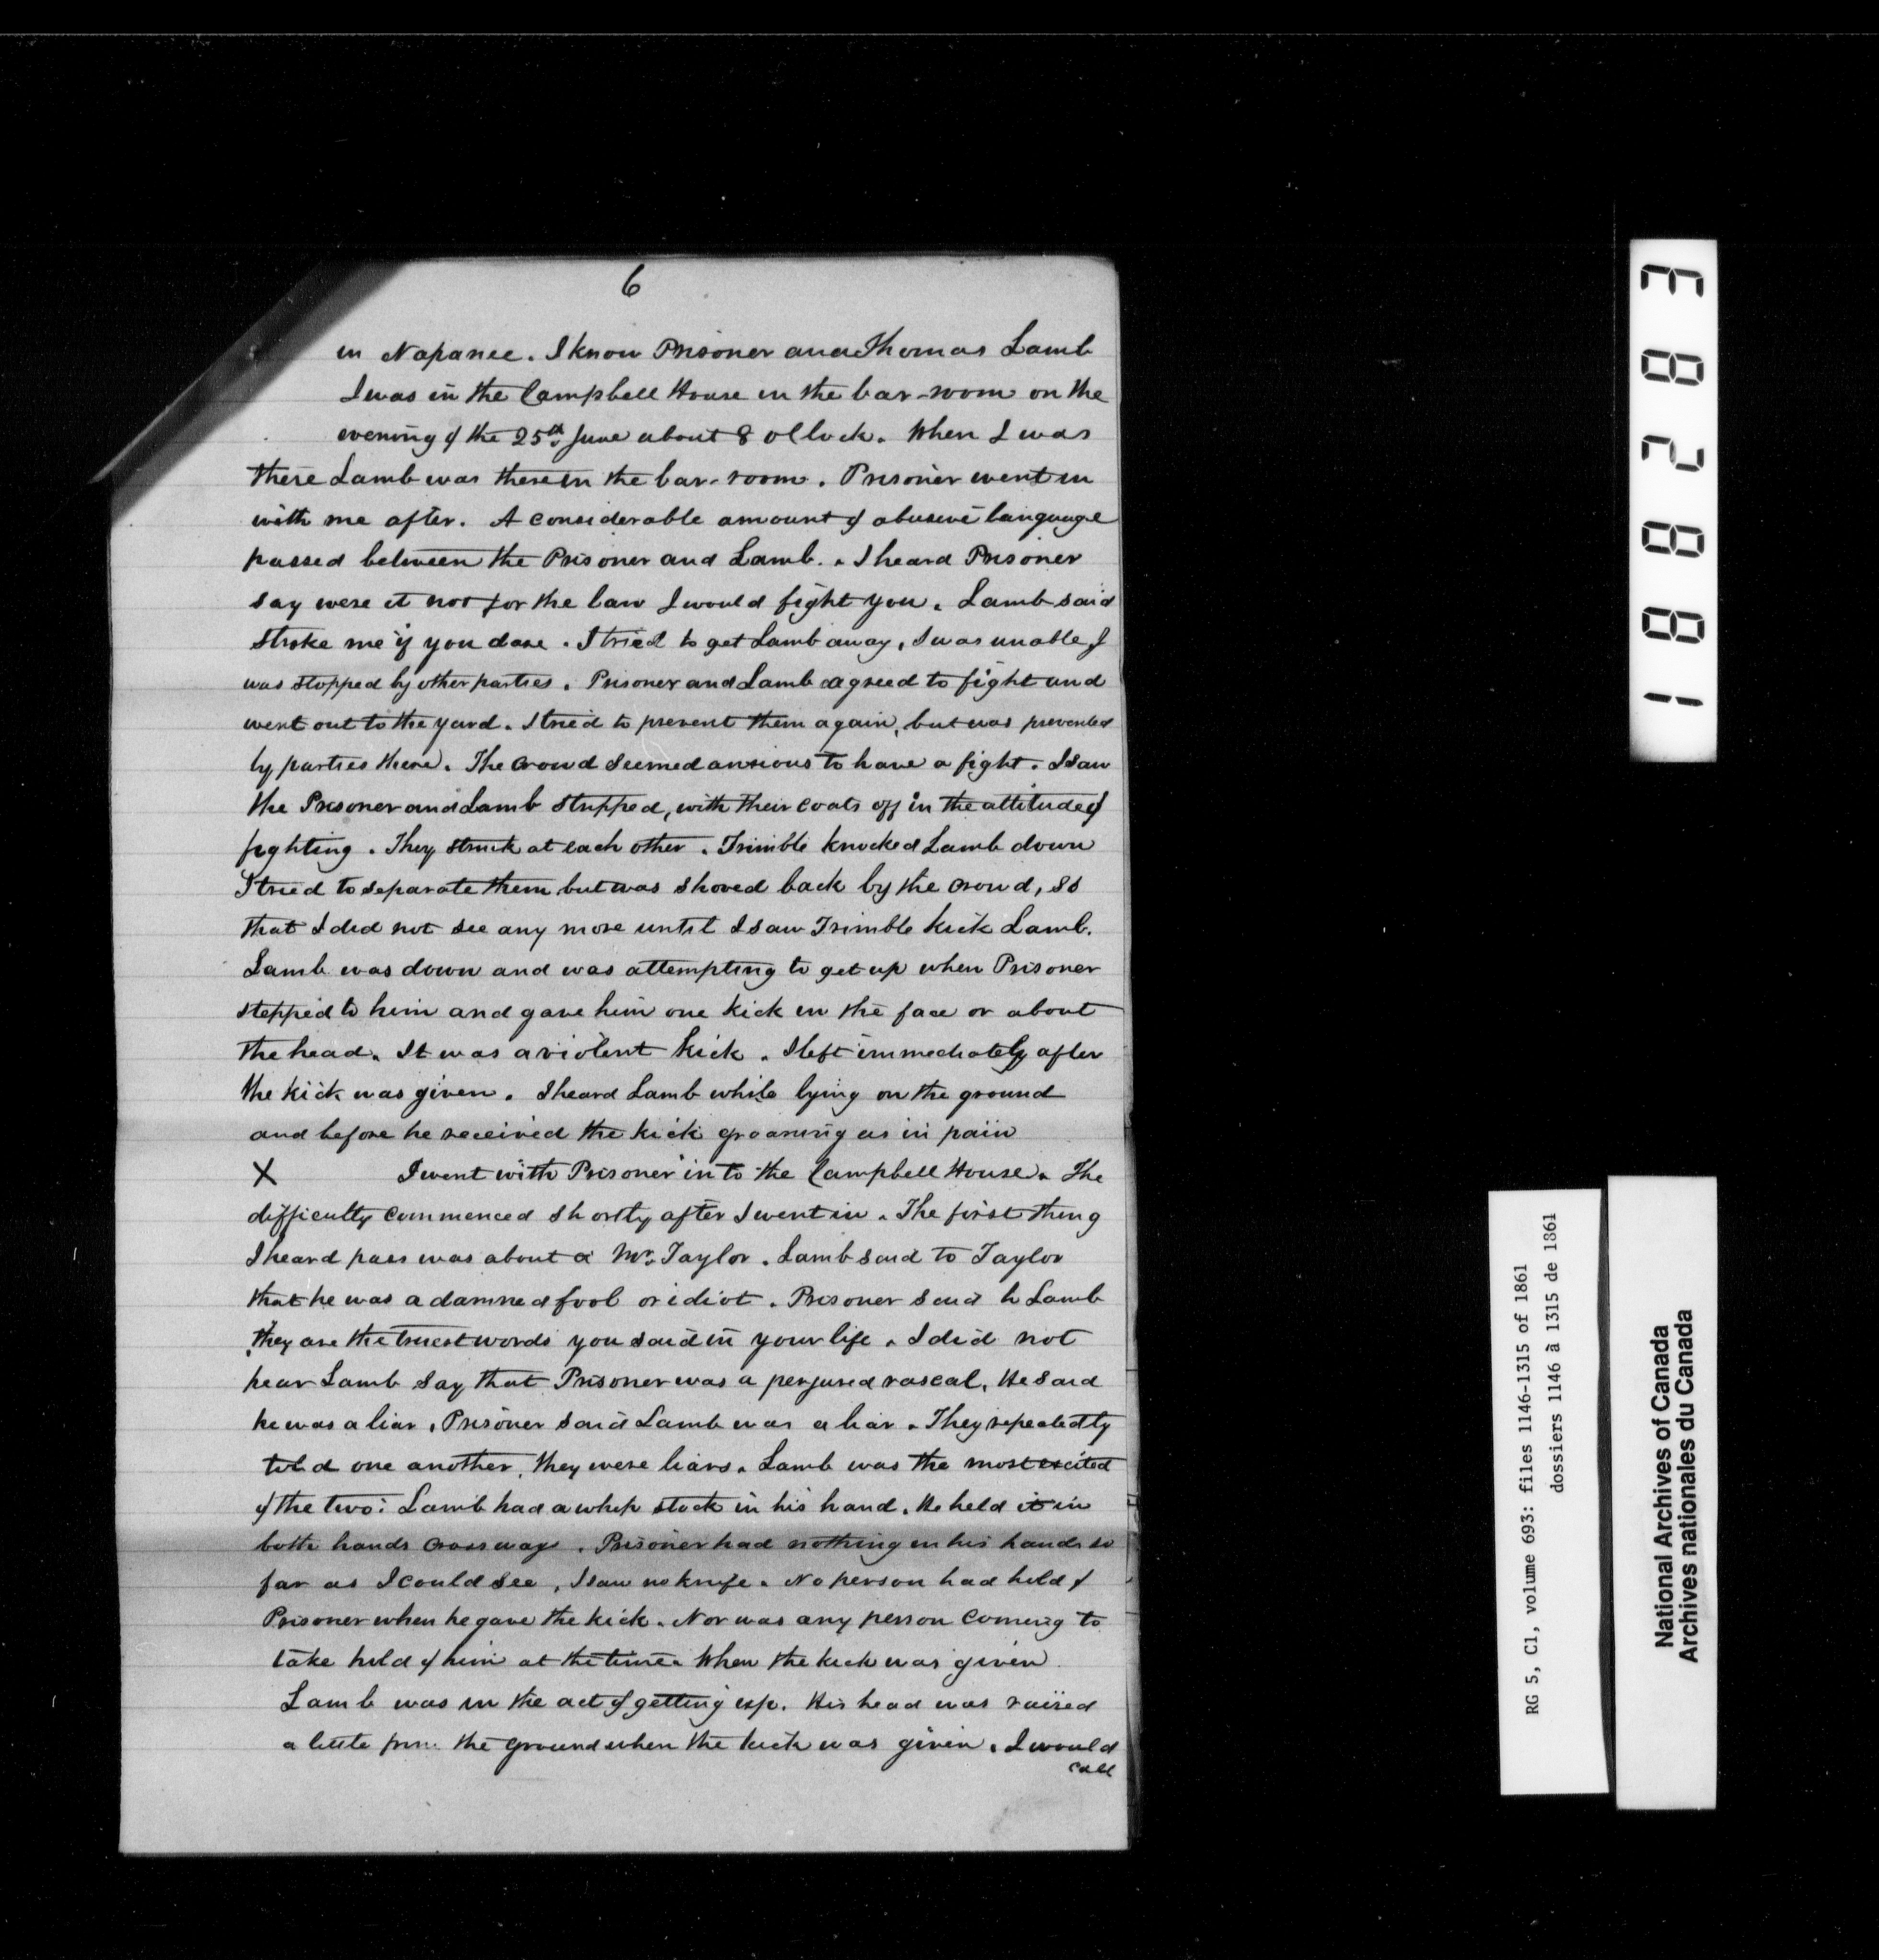 6
in Napanee. I know Prisoner and Thomas Lamb
I was in the Campbell House in the bar-room on the
evening of the 25th June about 8 oClock. When I was
there Lamb was there in the bar-room. Prisoner went in
with me after. A considerable amount of abusive language
passed between the Prisoner and Lamb. I heard Prisoner
say were it not for the law I would fight you. Lamb said
stroke me if you dare. I tried to get Lamb away, I was unable I
was stopped by other parties. Prisoner and Lamb agreed to fight and
went out to the yard. I tried to prevent them again, but was prevented
by parties there. The crowd seemed anxious to have a fight. I saw
the Prisoner and Lamb stripped, with their coats off in the attitude of
fighting. They struck at each other. Trimble knocked Lamb down
I tried to separate them but was shoved back by the crowd, so
that I did not see any more until I saw Trimble kick Lamb.
Lamb was down and was attempting to get up when Prisoner
stepped to him and gave him one kick in the face or about
the head. It was a violent kick. I left immediately after
the kick was given. I heard Lamb while lying on the ground
and before he received the kick groaning as in pain
X I went with Prisoner in to the Campbell House. The
difficulty commenced shortly after I went in. The first thing
I heard pass was about a Mr. Taylor. Lamb said to Taylor
that he was a damned fool or idiot. Prisoner said to Lamb
they are the truest words you said in your life. I did not
hear Lamb say that Prisoner was a perjured rascal. He said
he was a liar. Prisoner said Lamb was a liar. They repeatedly
told one another, they were liars. Lamb was the most excited
of the two. Lamb had a whip stock in his hand. He held it in
both hands crossways. Prisoner had nothing in his hands so
far as I could see, I saw no knife. No person had hold of
Prisoner when he gave the kick. Nor was any person coming to
take hold of him at the time. When the kick was given
Lamb was in the act of getting up. His head was raised
a little from the ground when the kick was given. I would
call
18283
RG 5, C1, volume 693: files 1146-1315 of 1861
dossiers 1146 à 1315 de 1861
National Archives of Canada
Archives nationales du Canada